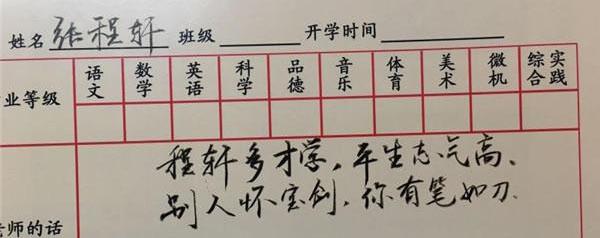 姓名 张程轩 班级 开学时间
业等级 语文 数学 英语 科学 品德 音乐 体育 美术 微机 综合实践
程轩多才学，平生志气高、
别人怀宝剑，你有笔如刀.
老师的话